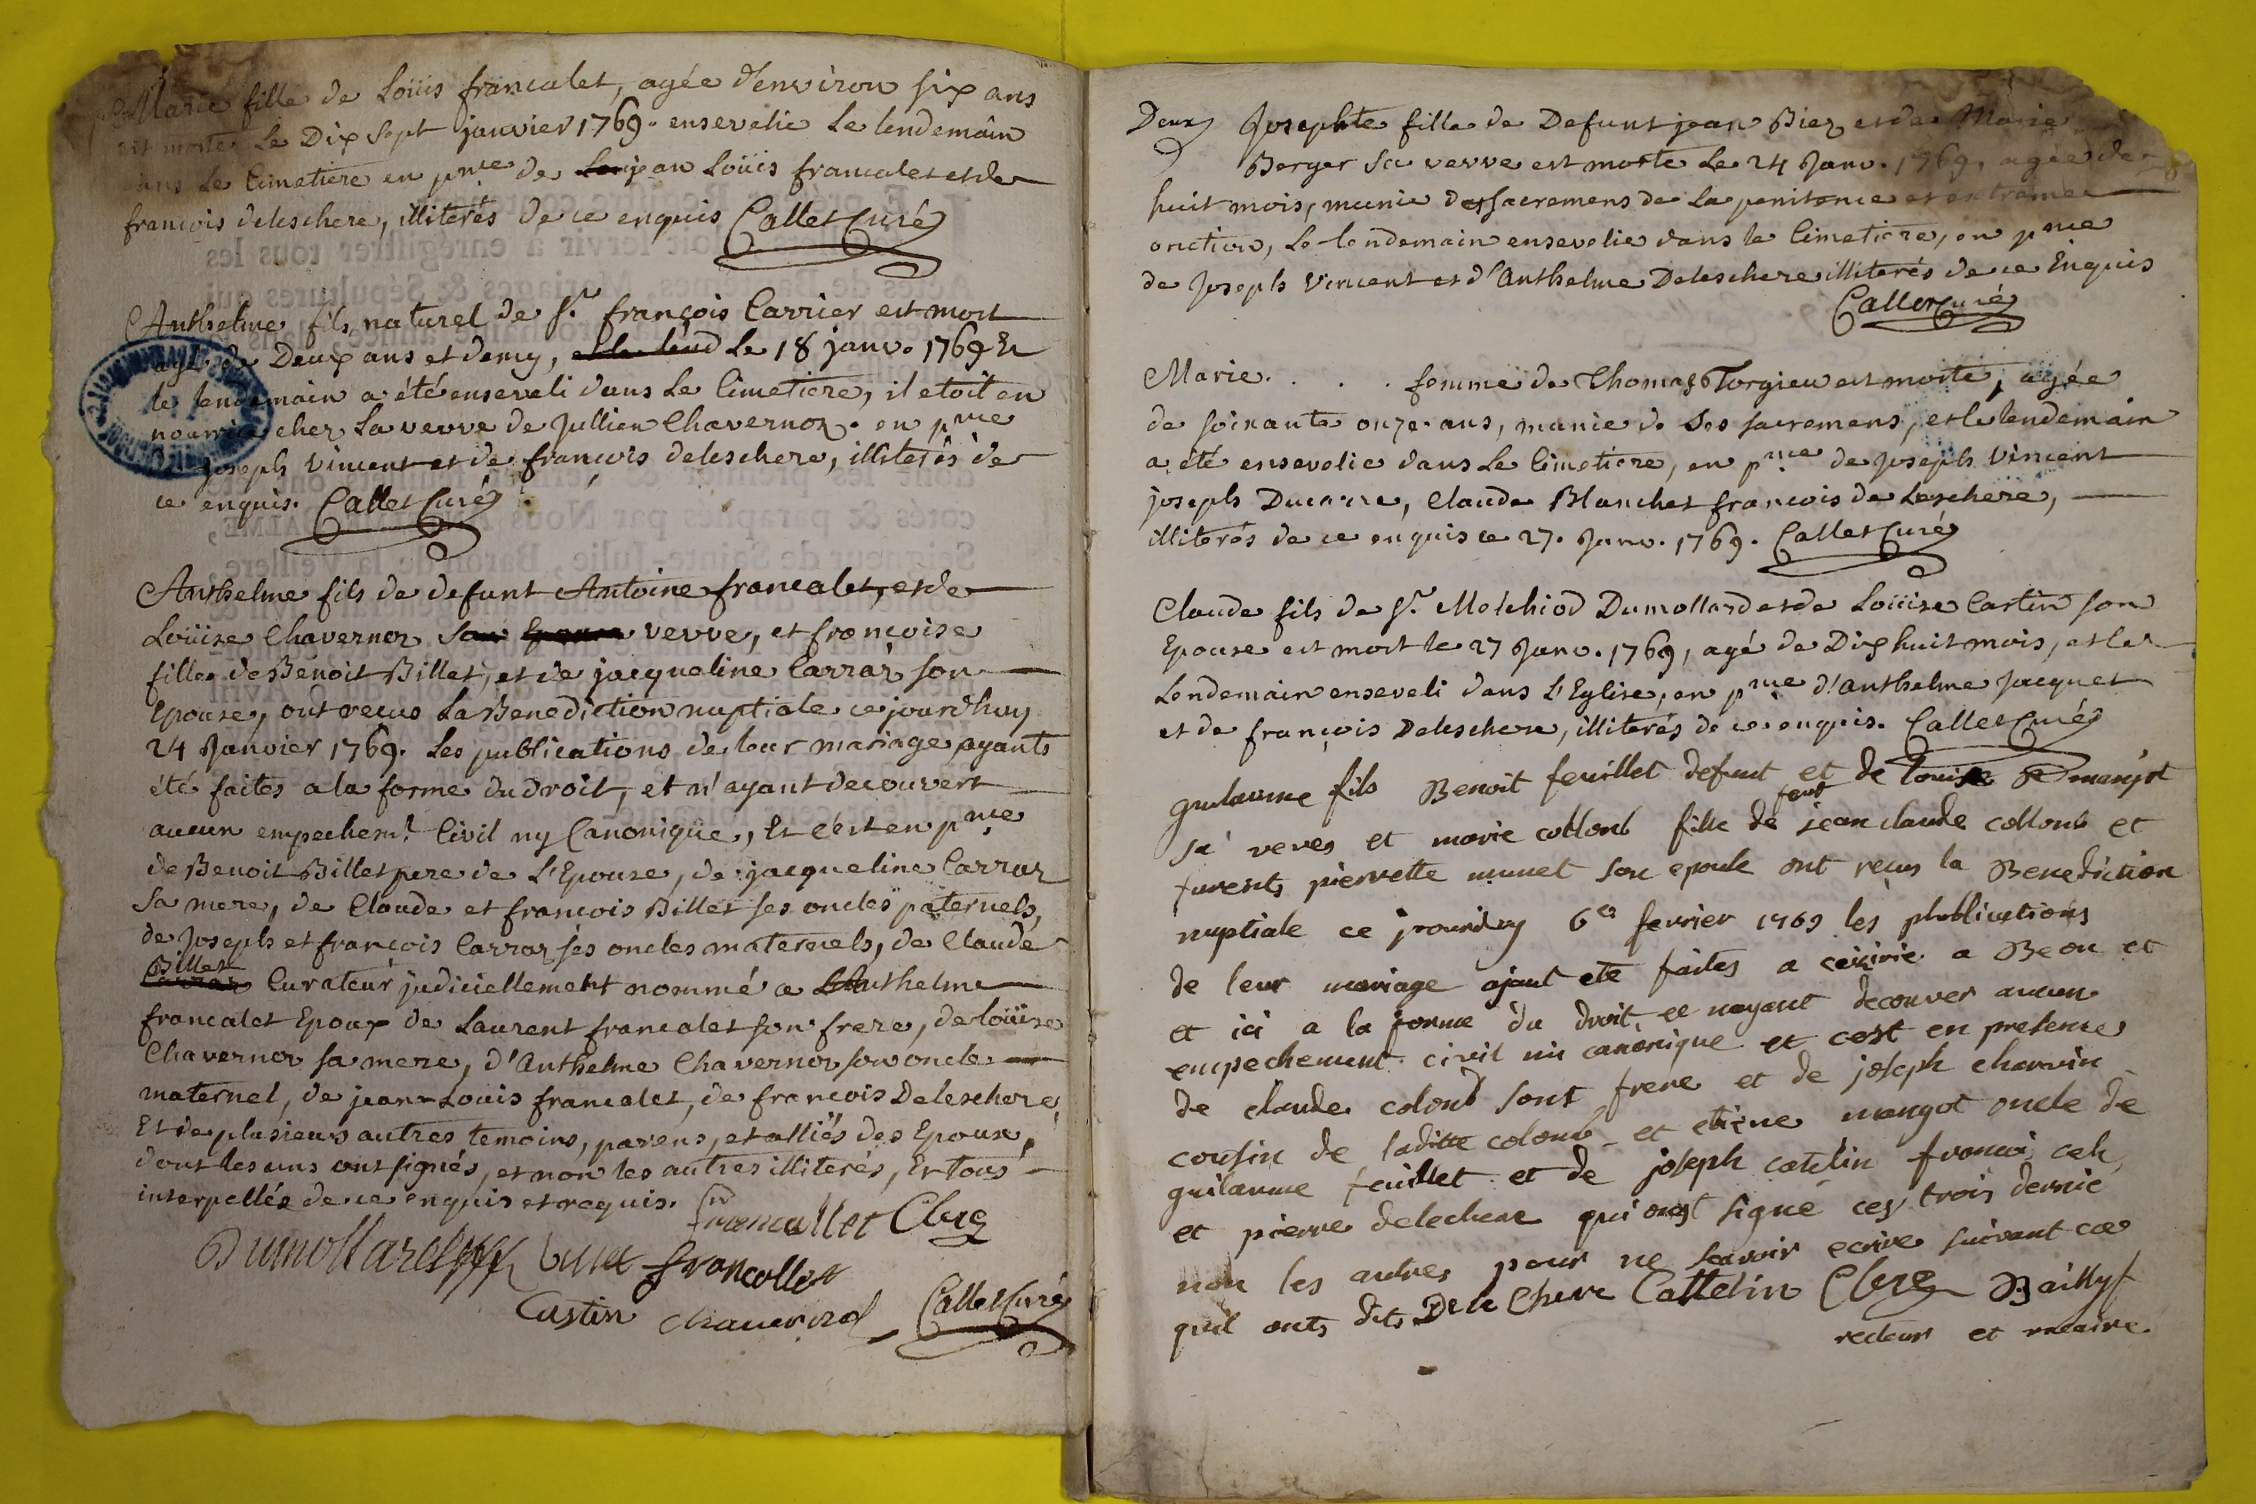 Marie fille de Loüis francalet, agée d'environ six ans
est morte Le Dix Sept janvier 1769. ensevelie Le lendemain
dans Le Cimetiere en pnce de jean Loüis francalet et de
françois deleschere, illiterés de ce enquis Callet Curé
Anthelme fils naturel de Sr. françois Carrier est mort
agé de Deux ans et demy, et le lend Le 18 janv. 1769 Et
le lendemain a été enseveli dans Le Cimetiere, il etoit en
nourrice chez La veuve de Jullien Chavernoz. en pnce
de Joseph Vincent et de françois deleschere, illiterés de
ce enquis. Callet Curé
Anthelme fils de defunt Antoine francalet, et de
Loüise Chavernoz son Epouse veuve, et françoise
fille de Benoit Billet, et de jacqueline Carraz son
Epouse, ont recus La Benediction nuptiale ce jourdhuy
24 Janvier 1769. Les publications de leur mariage ayants
été faites a la forme du droit, et n'ayant decouvert
aucun empechemt. Civil ny Canonique, Et c'est en pnce
de Benoit Billet pere de L'Epouse, de jacqueline Carraz
Sa mere, de Claude et françois Billet ses oncles paternels,
de Joseph et françois Carraz ses oncles maternels, de Claude
Billet
Carraz Curateur judiciellement nommé a Anthelme
francalet Epoux de Laurent francalet son frere, de loüise
Chavernoz sa mere, d'Anthelme Chavernoz son oncle
maternel, de jean-Louis francalet, de françois Deleschere,
Et de plusieurs autres temoins, parens, et alliés des Epoux,
dont les uns ont signés, et non les autres illiterés, Et tous
interpellés de ce enquis et requis.
francallet Clerc
Dumollard francollet
Castin chavernod Callet Curé
Deux Josephte fille de Defunt jean Biez et de Marie
Berger sa veuve est morte Le 24 Janv. 1769, agée de
huit mois, munie des sacremens de La penitence et extreme
onction, Le lendemain ensevelie dans le Cimetiere, en pnce
de Joseph Vincent et d'Anthelme Deleschere illiterés de ce Enquis
Callet Curé
Marie. . . . femme de Thomas Torgieu est morte, agée
de soixante onze ans, munie de Ses sacremens, et le lendemain
a été ensevelie dans Le Cimetiere, en pnce de Joseph Vincent
joseph Ducarre, Claude Blanchet françois de Leschere,
illiterés de ce enquis ce 27. Janv. 1769. Callet Curé
Claude fils de Sr. Melchiod Dumollard et de Loüise Castin son
Epouse est mort le 27 Janv. 1769, agé de Dix huit mois, et le
Lendemain enseveli dans L'Eglise, en pnce d'anthelme Jacquet
et de françois Deleschere, illiterés de ce enquis. Callet Curé
guilaume fils Benoit feuillet defunt et de louise mangot
sa veves et marie collomb fille de feut jean claude collomb et
furents pierrette munet son epouse ont recus la Benediction
nuptiale ce jourdhuy 6e fevrier 1769 les publications
de leur mariage ajant ete faites a ceizirie a Beon et
et ici a la forme du droit, ee nayant decouver aucun
empechement civil ni canonique et cest en presence
de claude colomb sont frere et de joseph charvin
cousin de laditte colomb et etiene mangot oncle de
guilaume feuillet et de joseph catelin francoi
et pierre delechere qui onst signé ces trois dernie
non les autres pour ne scavoir ecrire suivant ce
quil onts dits Dele Chere Cattelin Clerc Bailly
recteur et vicaire